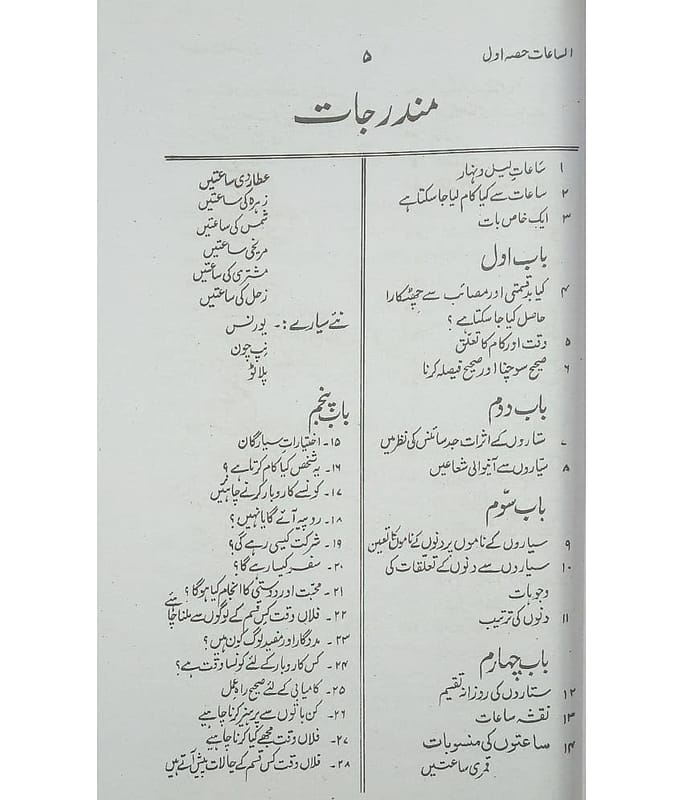 الساعات حصہ اول
۵
مندرجات
۱ ساعاتِ لیل و نہار
۲ ساعات سے کیا کام لیا جا سکتا ہے
۳ ایک خاص بات
باب اول
۴ کیا بدقسمتی اور مصائب سے چھٹکارا
حاصل کیا جا سکتا ہے ؟
۵ وقت اور کام کا تعلّق
۶ صحیح سوچنا اور صحیح فیصلہ کرنا
باب دوم
۷ ستاروں کے اثرات جد سائنس کی نظر میں
۸ سیّاروں سے آنیوالی شعاعیں
باب سوّم
۹ سیاروں کے ناموں پر دنوں کے ناموں کا تعین
۱۰ سیاروں سے دنوں کے تعلّقات کی
وجوہات
۱۱ دنوں کی ترتیب
باب چہارم
۱۲ ستاروں کی روزانہ تقسیم
۱۳ نقشہ ساعات
۱۴ ساعتوں کی منسوبات
قمری ساعتیں
عطاردی ساعتیں
زہرہ کی ساعتیں
شمس کی ساعتیں
مریخی ساعتیں
مشتری کی ساعتیں
زحل کی ساعتیں
نئے سیارے :۔ یورنس
نیپچون
پلاٹو
باب پنجم
۱۵۔ اختیاراتِ سیارگان
۱۶۔ یہ شخص کیا کام کرتا ہے ؟
۱۷۔ کونسے کاروبار کرنے چاہئیں
۱۸۔ روپیہ آئے گا یا نہیں ؟
۱۹۔ شرکت کیسی رہے گی ؟
۲۰۔ سفر کیسا رہے گا ؟
۲۱۔ محبت اور دوستی کا انجام کیا ہوگا ؟
۲۲۔ فلاں وقت کس قسم کے لوگوں سے ملنا چاہئے
۲۳۔ مددگار اور مفید لوگ کون ہیں ؟
۲۴۔ کس کاروبار کے لئے کونسا وقت ہے ؟
۲۵۔ کامیابی کے لئے صحیح راہِ عمل
۲۶۔ کن باتوں سے پرہیز کرنا چاہیے
۲۷۔ فلاں وقت مجھے کیا کرنا چاہیے
۲۸۔ فلاں وقت کس قسم کے حالات پیش آتے ہیں